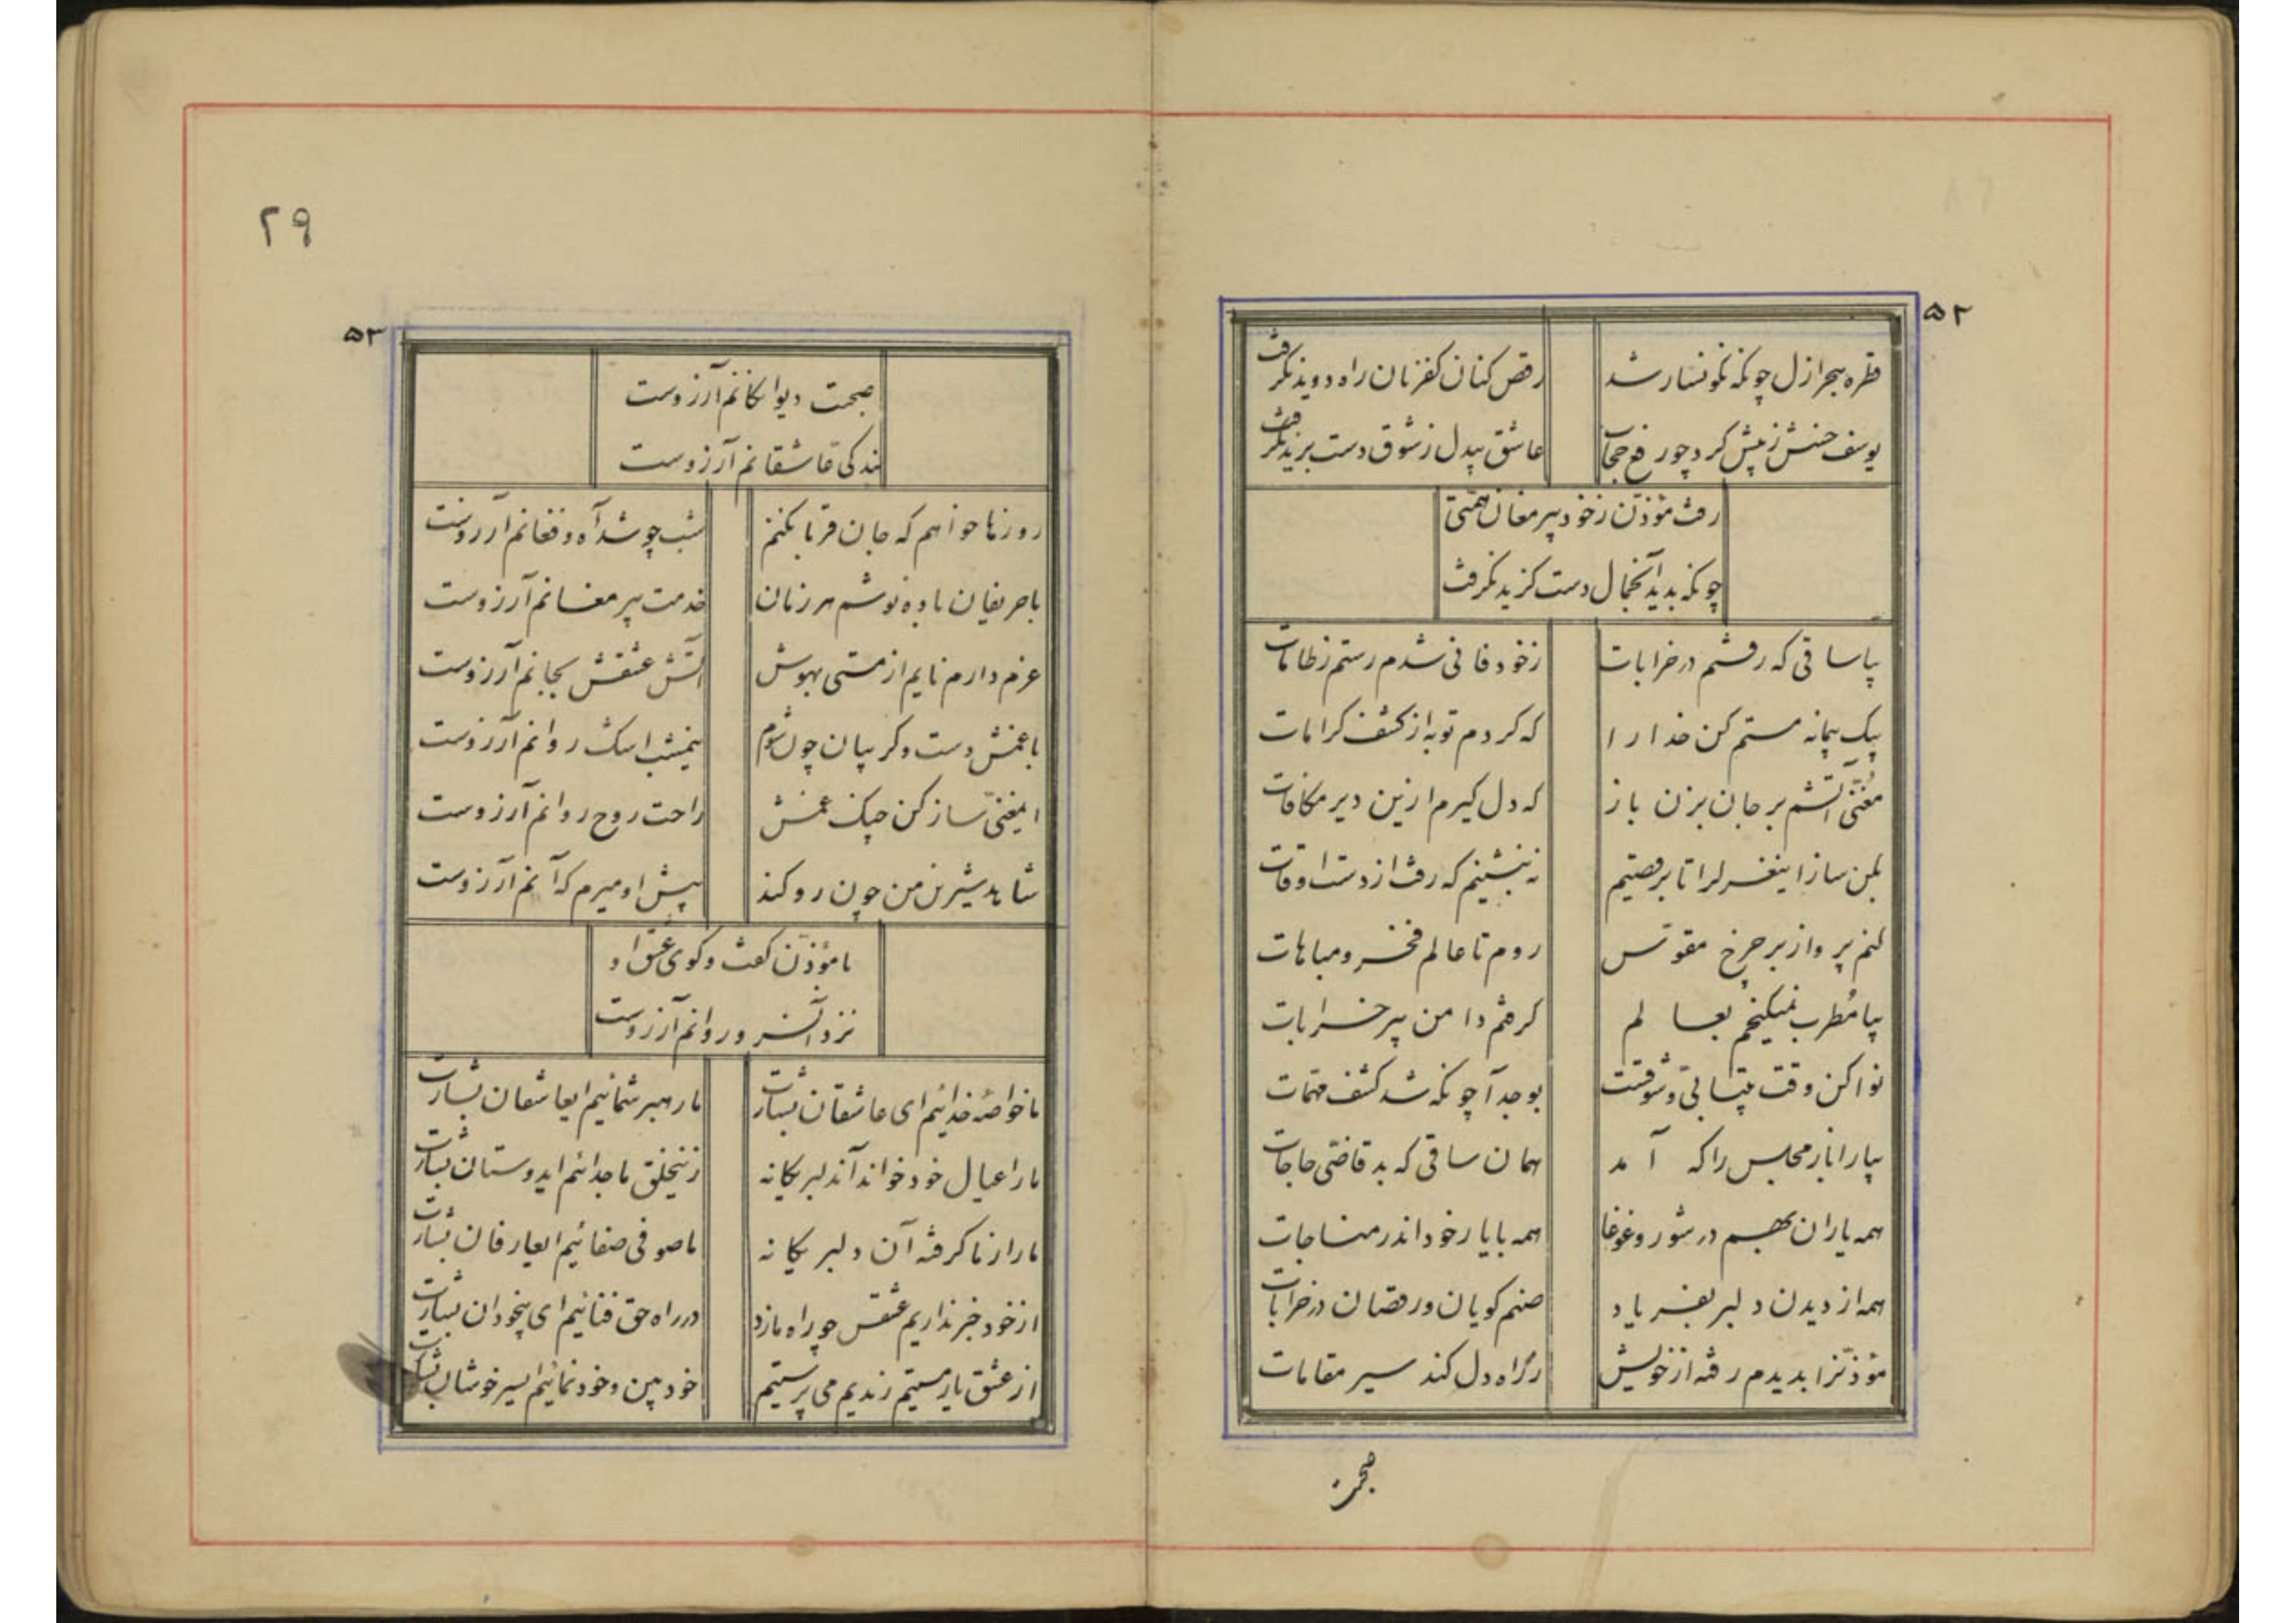 ۵۲
قطره بحر ازل چونکه نکونسار شد رقص کنان کفزنان راه دوید نکرفت
یوسف حسنش ز پیش کرد چو رفع حجاب عاشق بیدل ز شوق دست برید نکرفت
رفت مؤذّن ز خود پیر مغان همّتی
چونکه بدید آنجمال دست کزید نکرفت
بیا ساقی که رفتم در خرابات ز خود فانی شدم رستم ز طامات
بیک پیمانه مستم کن خدا را که کردم توبه از کشف کرامات
مغنّی آتشم بر جان بزن باز که دل کیرم ازین دیر مکافات
بمن ساز اینغزلرا تا برقصیم نه بنشینم که رفت از دست اوقات
کنم پرواز بر چرخ مقوّس روم تا عالم فخر و مباهات
بیا مُطرب نمیکنجم بعالم کرفتم دامن پیر خرابات
نوا کن وقت بیتابی و شوقست بوجد آ چونکه شد کشف مهمات
بیارا باز مجلس را که آمد همان ساقی که بد قاضی حاجات
همه یاران بهم در شور و غوغا همه با یار خود اندر مناجات
همه از دیدن دلبر بفریاد صنم کویان و رقصان در خرابات
مؤذّنرا بدیدم رفته از خویش ز راه دل کند سیر مقامات
صحبت
۲۹
۵۳
صحبت دیوانکانم آرزوست
بندکی عاشقانم آرزوست
روزها خواهم که جان قربا کنم شب چو شد آه و فغانم آرزوست
با حریفان باده نوشم هر زمان خدمت پیر مغانم آرزوست
عزم دارم تا یم از مستی بهوش آتش عشقش بجانم آرزوست
با غمش دست و کریبان چون شوم نیمشب اشک روانم آرزوست
ایمغنّی ساز کن چنک غمش راحت روح روانم آرزوست
شاهد شیرین من چون رو کند پیش او میرم که آنم آرزوست
با مؤذّن کفت و کوی عشق او
نزد آنسرو روانم آرزوست
ما خواصّه خدائیم ای عاشقان بشارت ما رهبر شمائیم ایعاشقان بشارت
ما را عیال خود خواند آندلبر یکانه زینخلق ما جدائیم ایدوستان بشارت
ما را ز ما کرفته آن دلبر یکانه ما صوفی صفائیم ایعارفان بشارت
از خود خبر نداریم عشقش چو راه ما زد در راه حق فنائیم ای بیخودان بشارت
از عشق یار مستیم رندیم می پرستیم خود بین و خود نمائیم ایسرخوشان بشارت